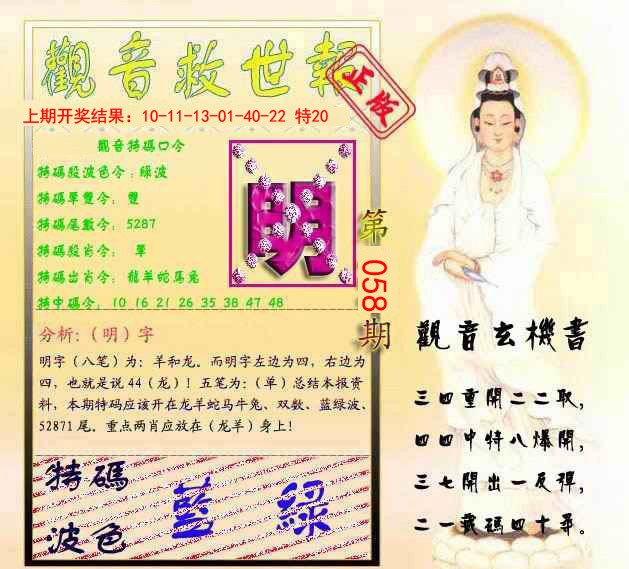 觀音救世報
正版
上期开奖结果：10-11-13-01-40-22 特20
觀音特碼口令
特碼段波色令：綠波
特碼單雙令： 雙
特碼尾數令： 5287
特碼段肖令： 單
特碼出肖令： 龍羊蛇馬兔
特中碼令： 10 16 21 26 35 38 47 48
明
第058期
分析：（明）字
明字（八笔）为：羊和龙。而明字左边为四，右边为
四，也就是说 44（龙）！五笔为：（单）总结本报资
料，本期特码应该开在龙羊蛇马牛兔、双数、蓝绿波、
52871 尾。重点两肖应放在（龙羊）身上！
特碼
波色
藍 綠
觀音玄機書
三四重開二二取，
四四中特八爆開，
三七開出一反彈，
二一載碼四十尋。